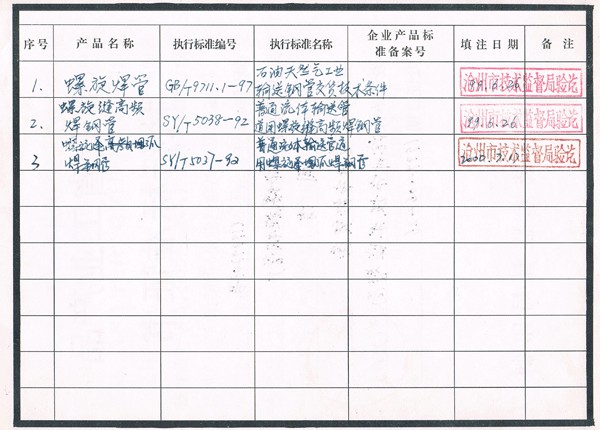 序号 产品名称 执行标准编号 执行标准名称 企业产品标准备案号 填注日期 备注
1. 螺旋焊管 GB/T9711.1-97 石油天然气工业
输送钢管交货技术条件 沧州市技术监督局验讫
2. 螺旋缝高频
焊钢管 SY/T5038-92 普通流体输送管
道用螺旋缝高频焊钢管 沧州市技术监督局验讫
3 螺旋缝
焊钢管 SY/T5037-92 普通流体输送管道
用螺旋缝埋弧焊钢管 沧州市技术监督局验讫